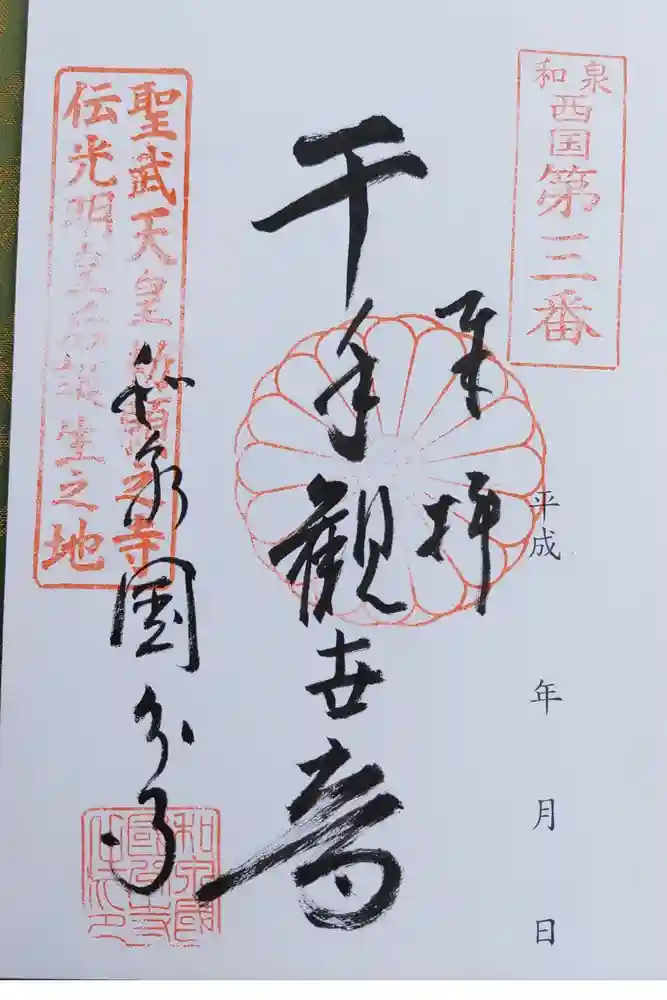 和泉
西国第三番
平成 年 月 日
奉拝
千手観世音
和泉国分寺
聖武天皇勅願之寺
伝光明皇后誕生之地